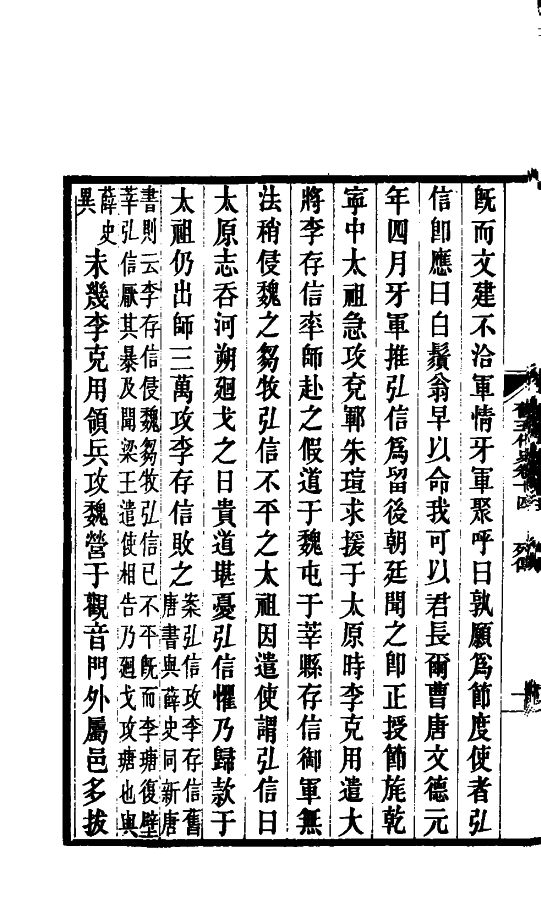 既而文建不洽軍情牙軍聚呼曰孰願爲節度使者弘
信卽應曰白鬚翁早以命我可以君長爾曹唐文德元
年四月牙軍推弘信爲留後朝廷聞之卽正授節旄乾
寧中太祖急攻兗鄆朱瑄求援于太原時李克用遣大
將李存信率師赴之假道于魏屯于莘縣存信御軍無
法稍侵魏之芻牧弘信不平之太祖因遣使謂弘信曰
太原志吞河朔廻戈之日貴道堪憂弘信懼乃歸款于
太祖仍出師三萬攻李存信敗之
案弘信攻李存信舊
唐書與薛史同新唐
書則云李存信侵魏芻牧弘信已不平旣而李瑭復壁
莘弘信厭其暴及聞梁王遣使相告乃廻戈攻瑭也與
薛史
異
未幾李克用領兵攻魏營于觀音門外屬邑多拔
五代史卷十四 列傳